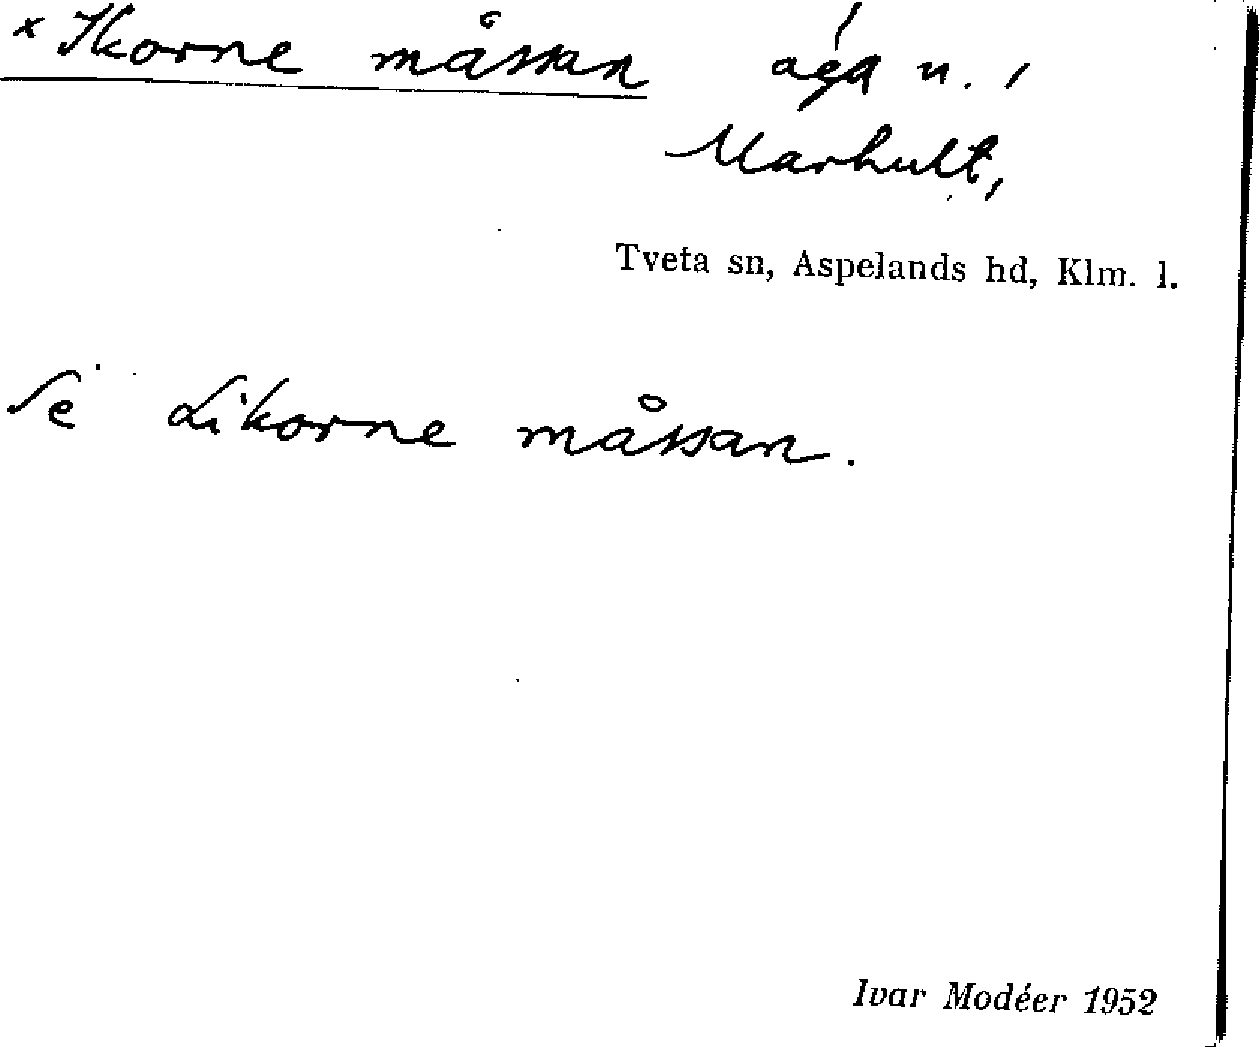 x Ikorne måssan ägn. i
Marhult,
Tveta sn, Aspelands hd, Klm. l.
Se Likorne måssan.
Ivar Modéer 1952